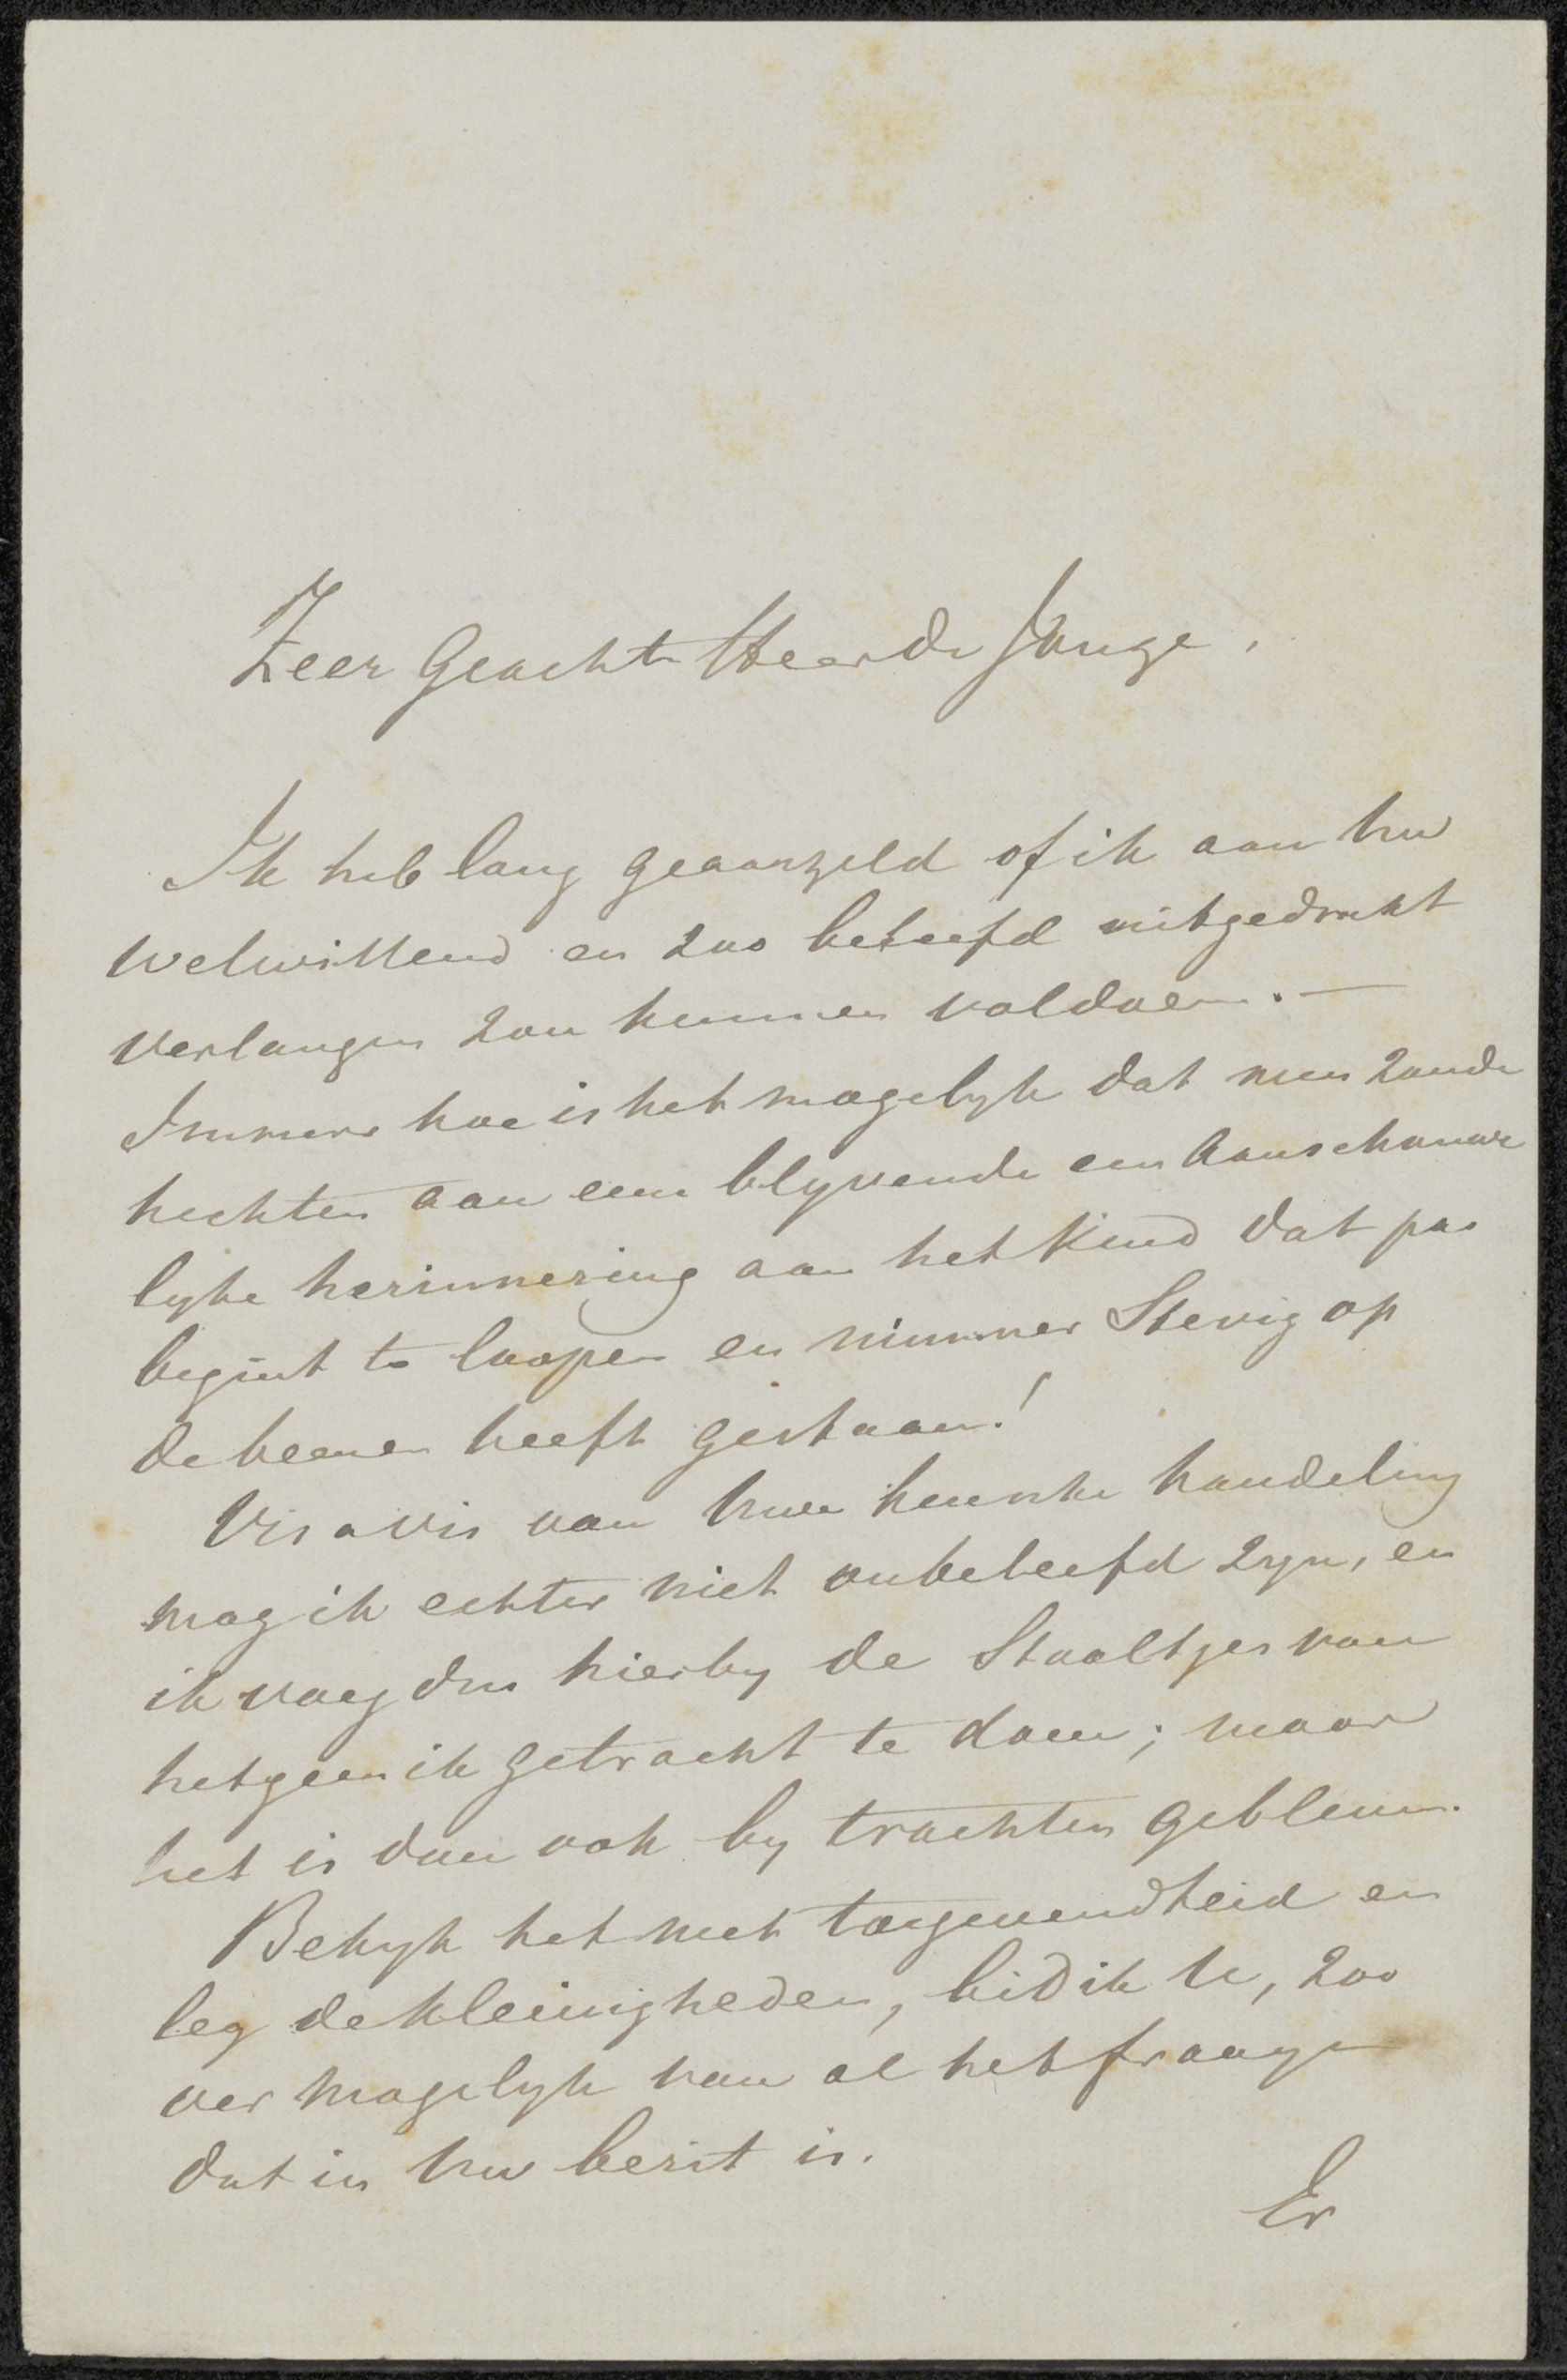 Zeer Geachte Heer de Jonge,
Ik heb lang geaarzeld of ik aan Uw
welwillend en zoo beleefd uitgedrukt
verlangen zou kunnen voldoen. —
Immers hoe is het mogelyk dat men zoude
hechten aan een blyvende een aanschouwe
lyke herinnering aan het kind dat pas
begint te loopen en nimmer Stevig op
de beenen heeft gestaan!
Vis a vis van Uwe heusche handeling
mag ik echter niet onbeleefd zyn, en
ik voeg dus hierby de Staaltjes van
hetgeen ik getracht te doen; maar
het is dan ook by trachten gebleven.
Bekyk het met toegevendheid en
leg de kleinigheden, bid ik U, zoo
ver mogelyk van al het fraaye
dat in Uw bezit is.
Er